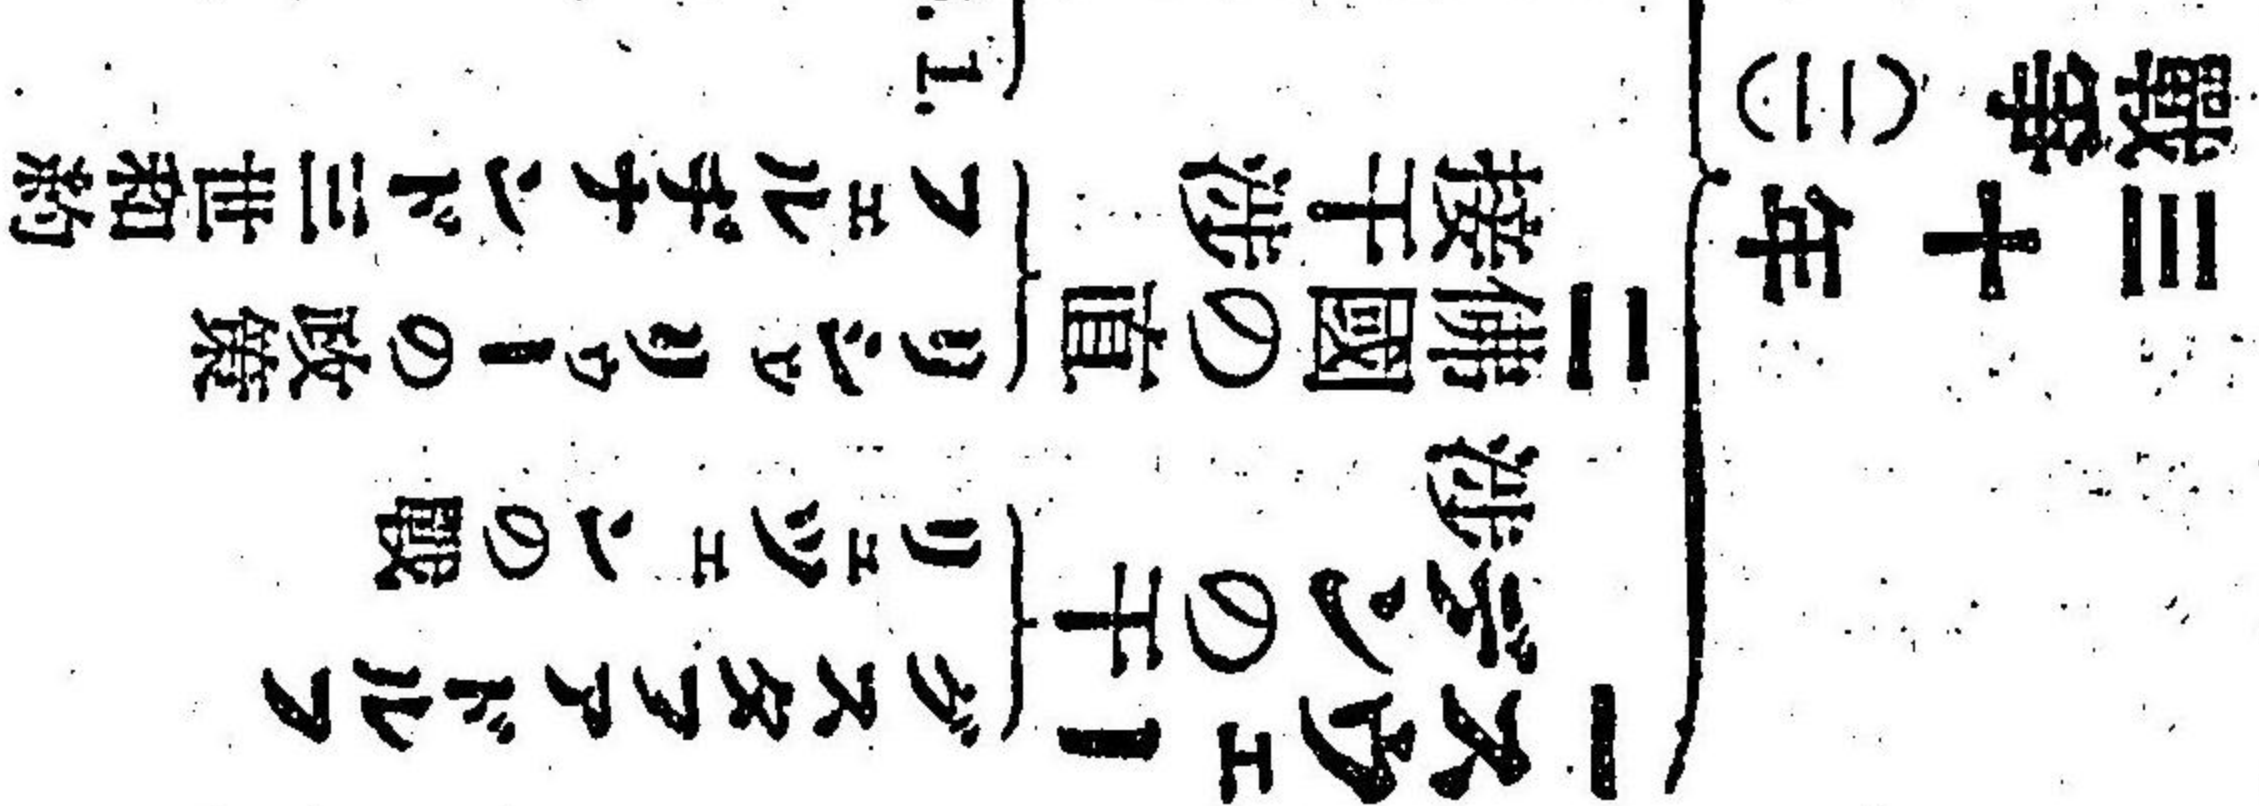 三十年
戰爭(二)
一スウェー
デンの干
涉
グスタフアドルフ
リュツェンの戰
二佛國の直
接干涉
リシュリューの政策
フェルヂナンド三世和約
1.